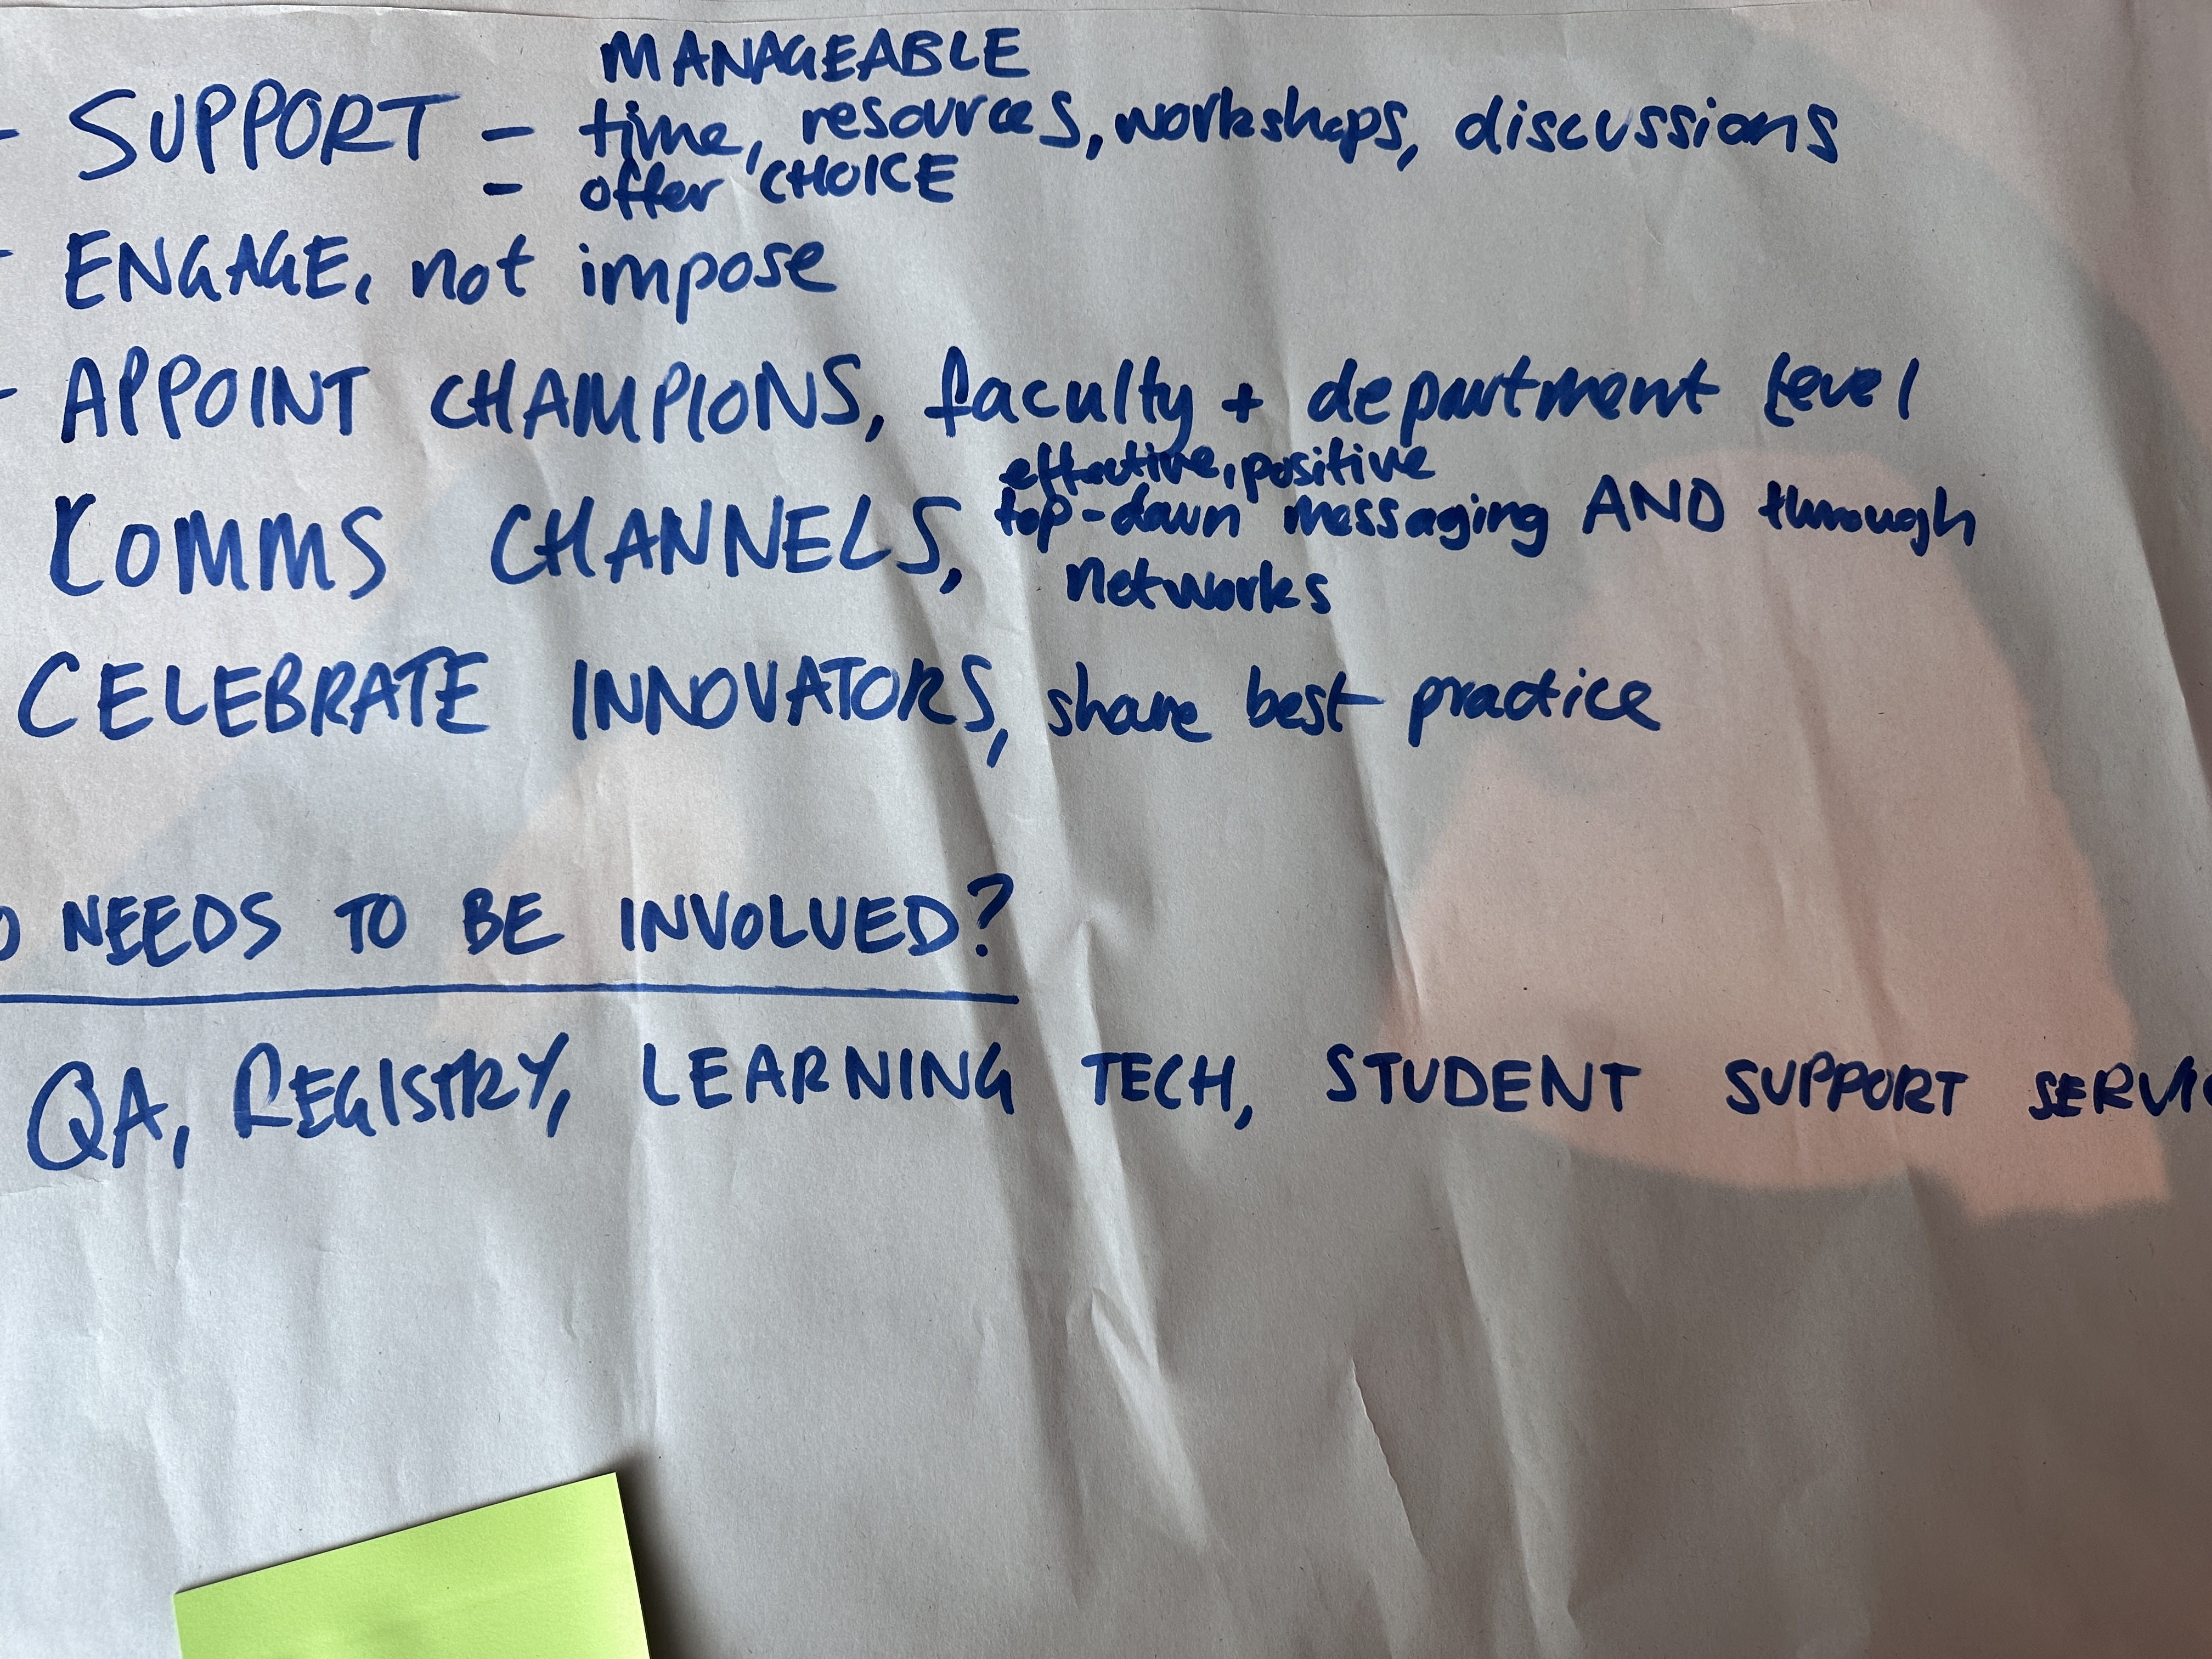 MANAGEABLE
- SUPPORT - time, resources, workshops, discussions
- offer CHOICE
- ENGAGE, not impose
- APPOINT CHAMPIONS, faculty + department level
effective, positive
COMMS CHANNELS, top-down messaging AND through
networks
CELEBRATE INNOVATORS, share best practice
O NEEDS TO BE INVOLVED?
QA, REGISTRY, LEARNING TECH, STUDENT SUPPORT SERVIC